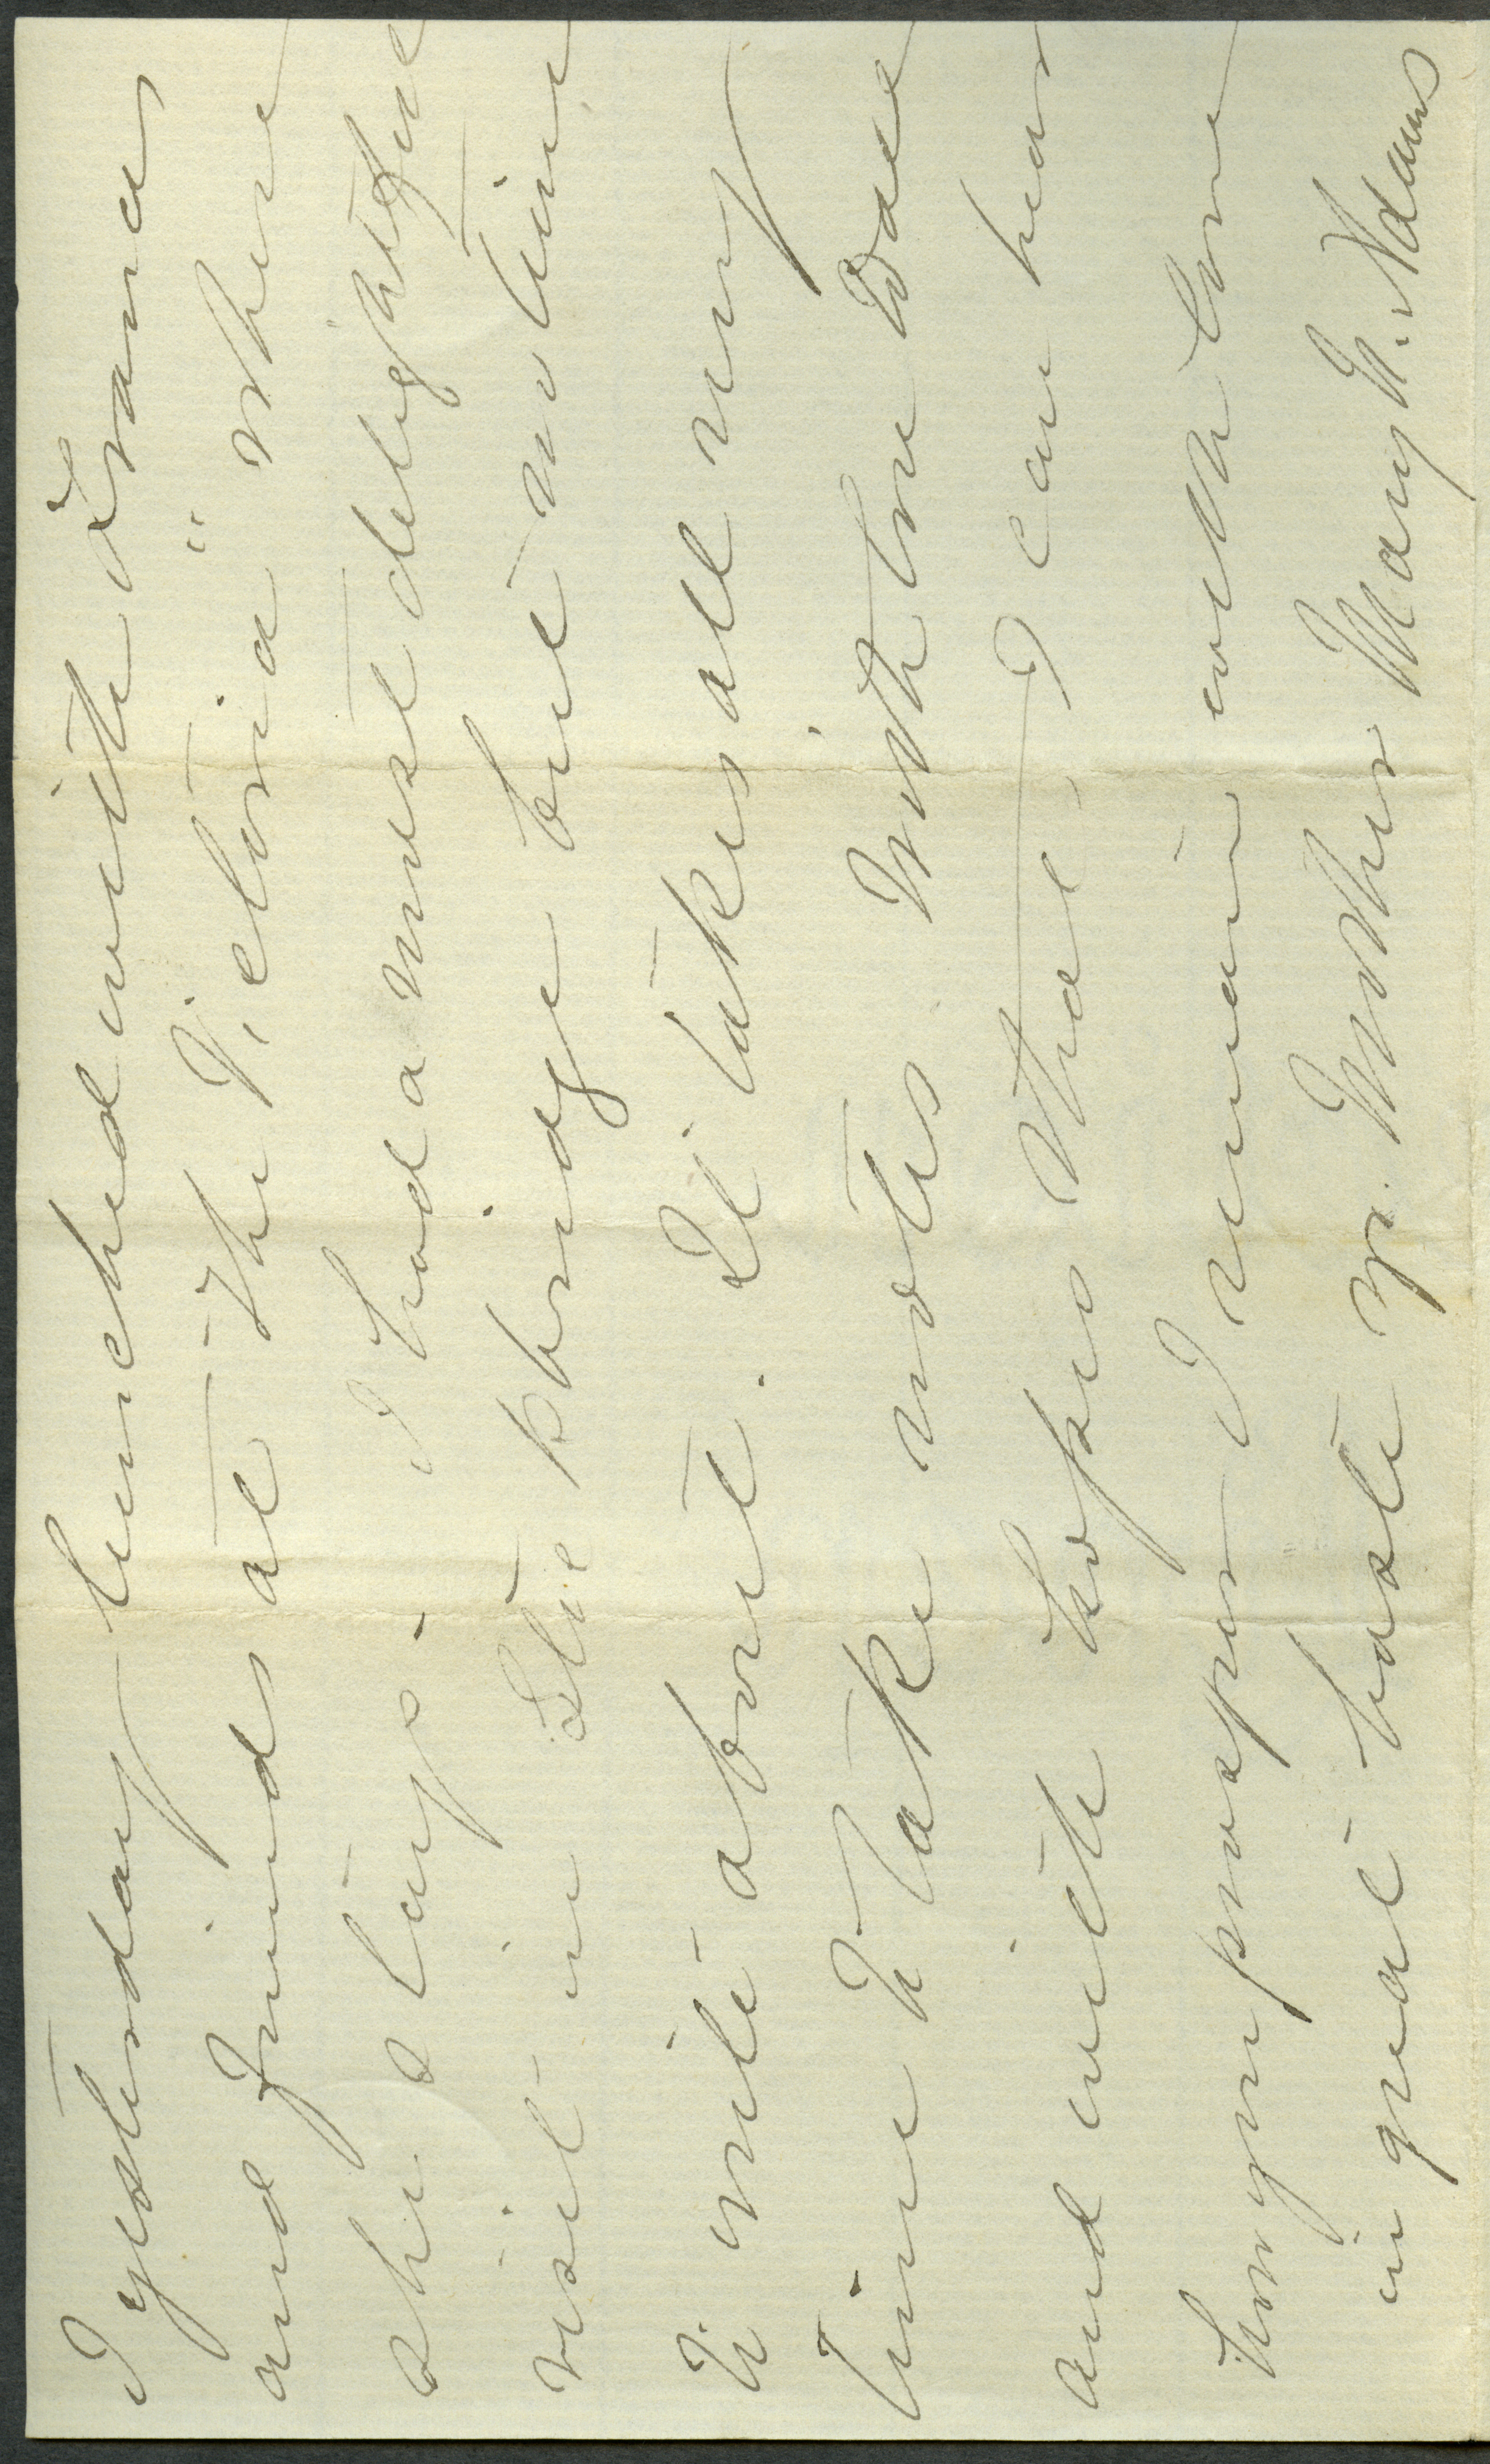 I yesterday lunched with Frances
and friends at the Victoria " where
she stays - I had a most delightful
visit in Stockbridge but no time
to write about. It takes all my
time to take notes With love dear
and with hopes that I can hear
how you prosper I remain with love
in great haste yr. Mother Mary N. Adams